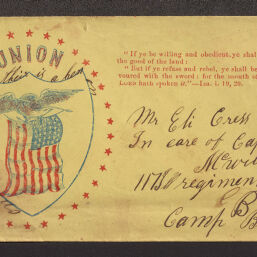 UNION
their is a hen
" If ye be willing and obedient, ye shal
the good of the land:
" But if ye refuse and rebel, ye shall be
voured with the sword: for the mouth of
LORD hath spoken it."—Isa. i. 19, 20.
Mr Eli Cress
In care of Cap
McWi
117th regimen
Camp B